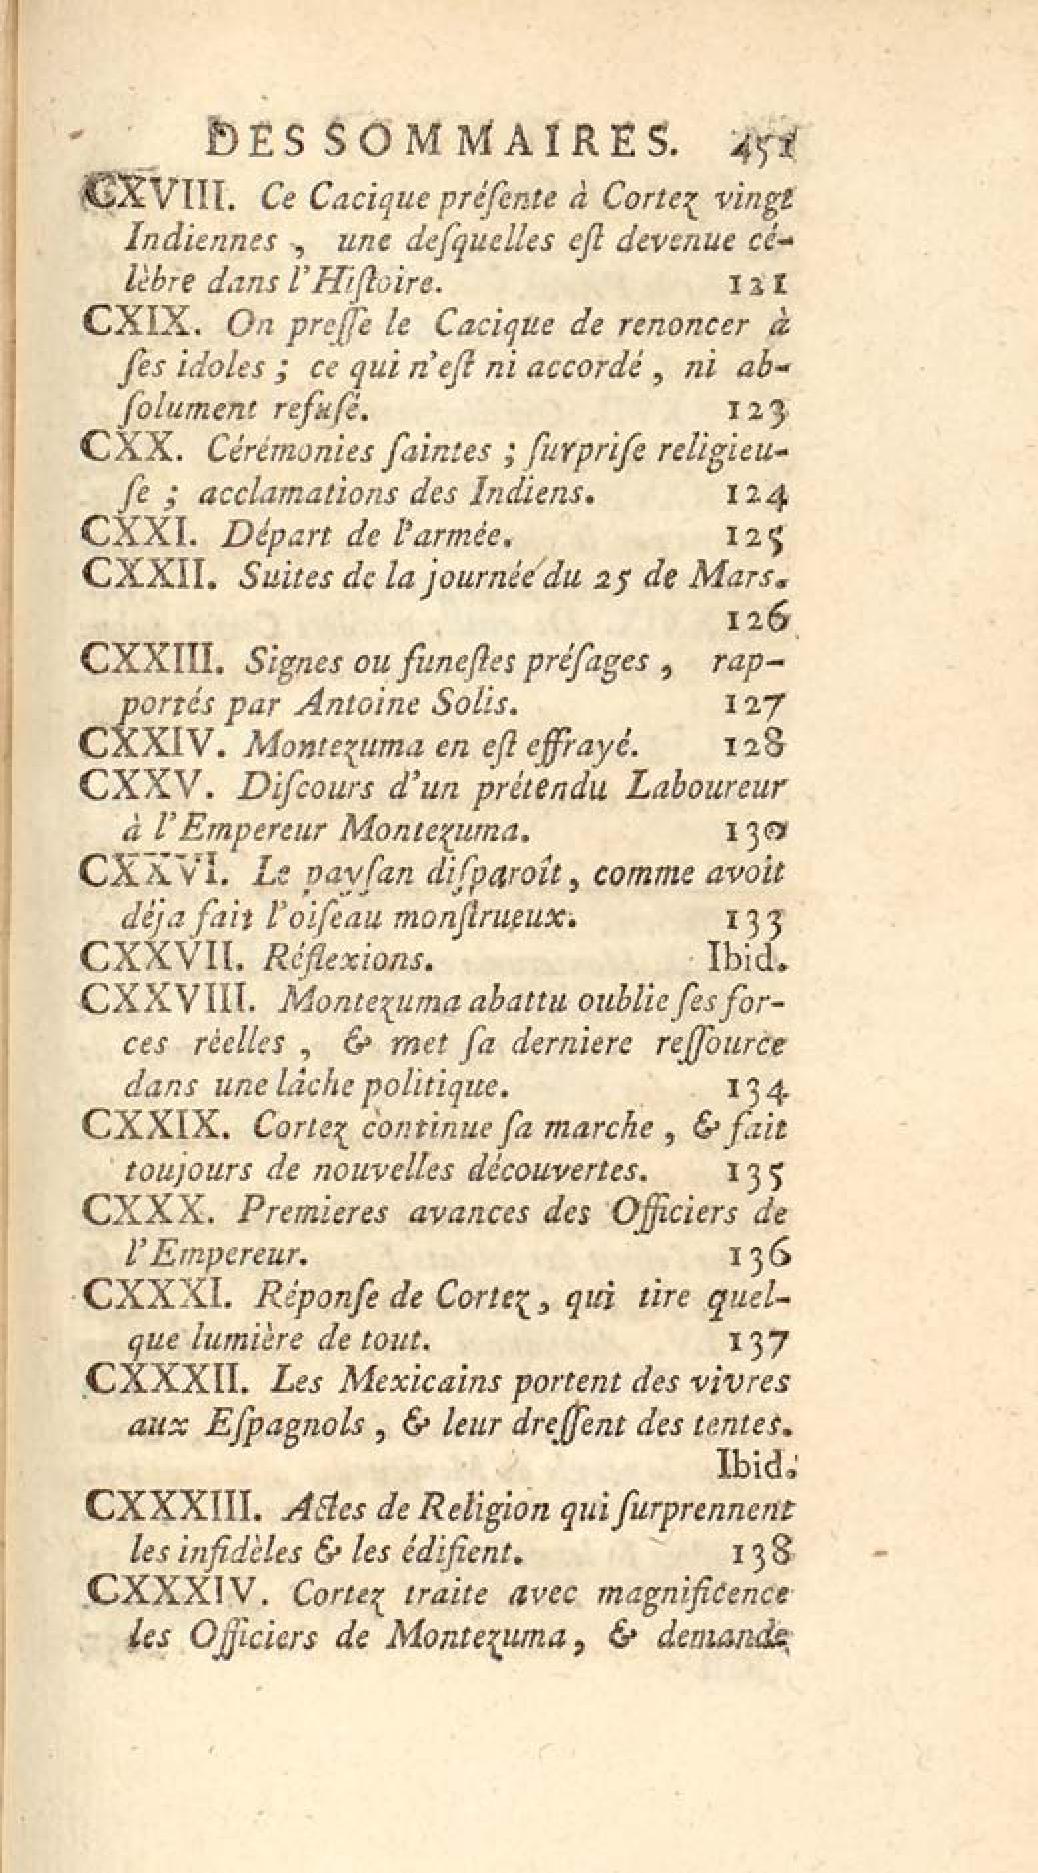 DES SOMMAIRES. 451
CXVIII. Ce Cacique préſente à Cortez vingt
Indiennes, une deſquelles eſt devenue cé-
lèbre dans l'Hiſtoire. 121
CXIX. On preſſe le Cacique de renoncer à
ſes idoles ; ce qui n'eſt ni accordé, ni ab-
ſolument refuſé. 123
CXX. Cérémonies ſaintes ; ſurpriſe religieu-
ſe ; acclamations des Indiens. 124
CXXI. Départ de l'armée. 125
CXXII. Suites de la journée du 25 de Mars.
126
CXXIII. Signes ou funeſtes préſages, rap-
portés par Antoine Solis. 127
CXXIV. Montezuma en eſt effrayé. 128
CXXV. Diſcours d'un prétendu Laboureur
à l'Empereur Montezuma. 130
CXXVI. Le payſan diſparoît, comme avoit
déja fait l'oiſeau monſtrueux. 133
CXXVII. Réflexions. Ibid.
CXXVIII. Montezuma abattu oublie ſes for-
ces réelles, & met ſa derniere reſſource
dans une lâche politique. 134
CXXIX. Cortez continue ſa marche, & fait
toujours de nouvelles découvertes. 135
CXXX. Premieres avances des Officiers de
l'Empereur. 136
CXXXI. Réponſe de Cortez, qui tire quel-
que lumière de tout. 137
CXXXII. Les Mexicains portent des vivres
aux Eſpagnols, & leur dreſſent des tentes.
Ibid.
CXXXIII. Actes de Religion qui ſurprennent
les infidèles & les édifient. 138
CXXXIV. Cortez traite avec magnificence
les Officiers de Montezuma, & demande